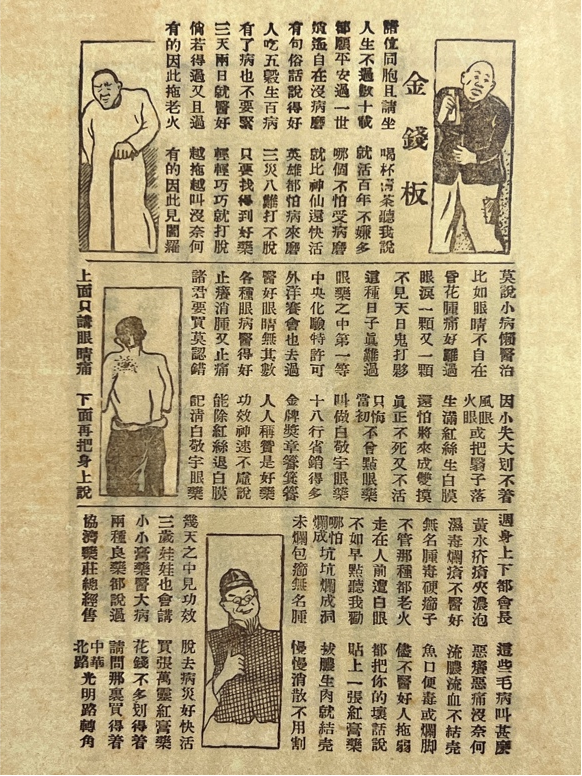 金錢板
諸位同胞且請坐 喝杯清茶聽我說
人生不過數十載 就活百年不嫌多
都願平安過一世 哪個不怕受病磨
逍遙自在沒病磨 就比神仙還快活
有句俗話說得好 英雄都怕病來磨
人吃五穀生百病 三災八難打不脫
有了病也不要緊 只要找得到好藥
三天兩日就醫好 輕輕巧巧就打脫
倘若得過又且過 越拖越叫沒奈何
有的因此拖老火 有的因此見閻羅
莫說小病懶醫治 因小失大划不着
比如眼睛不自在 風眼火眼或把翳子落
昏花腫痛好難過 生滿紅絲生白膜
眼淚一顆又一顆 還怕將來成雙摸
不見天日鬼打夥 眞正不死又不活
這種日子眞難過 只悔當初不曾點眼藥
眼藥之中第一等 叫做白敬宇眼藥
中央化驗特許可 十八行省銷得多
外洋賽會也去過 金牌獎章
醫好眼睛無其數 人人稱贊是好藥
各種眼病醫得好 功效神速不虛說
止癢消腫又止痛 能除紅絲退白膜
諸君要買莫認錯 記淸白敬宇眼藥
上面只講眼睛痛 下面再把身上說
週身上下都會長 這些毛病叫甚麼
黃水疥瘡夾濃泡 惡癢惡痛沒奈何
濕毒爛瘡不醫好 流膿流血不結壳
無名腫毒硬癤子 魚口便毒或爛脚
不管那種都老火 儘不醫好人拖弱
走在人前遭白眼 都把你的壞話說
不如早點聽我勸 貼上一張紅膏藥
哪怕爛成坑坑爛成洞 拔膿生肉就結壳
未爛包癤無名腫 慢慢消散不用割
幾天之中見功效 脫去病災好快活
三歲娃娃也會講 買張萬靈紅膏藥
小小膏藥醫大病 花錢不多划得着
兩種良藥都說過 請問那裏買得着
協濟藥莊總經售 中華北路光明路轉角